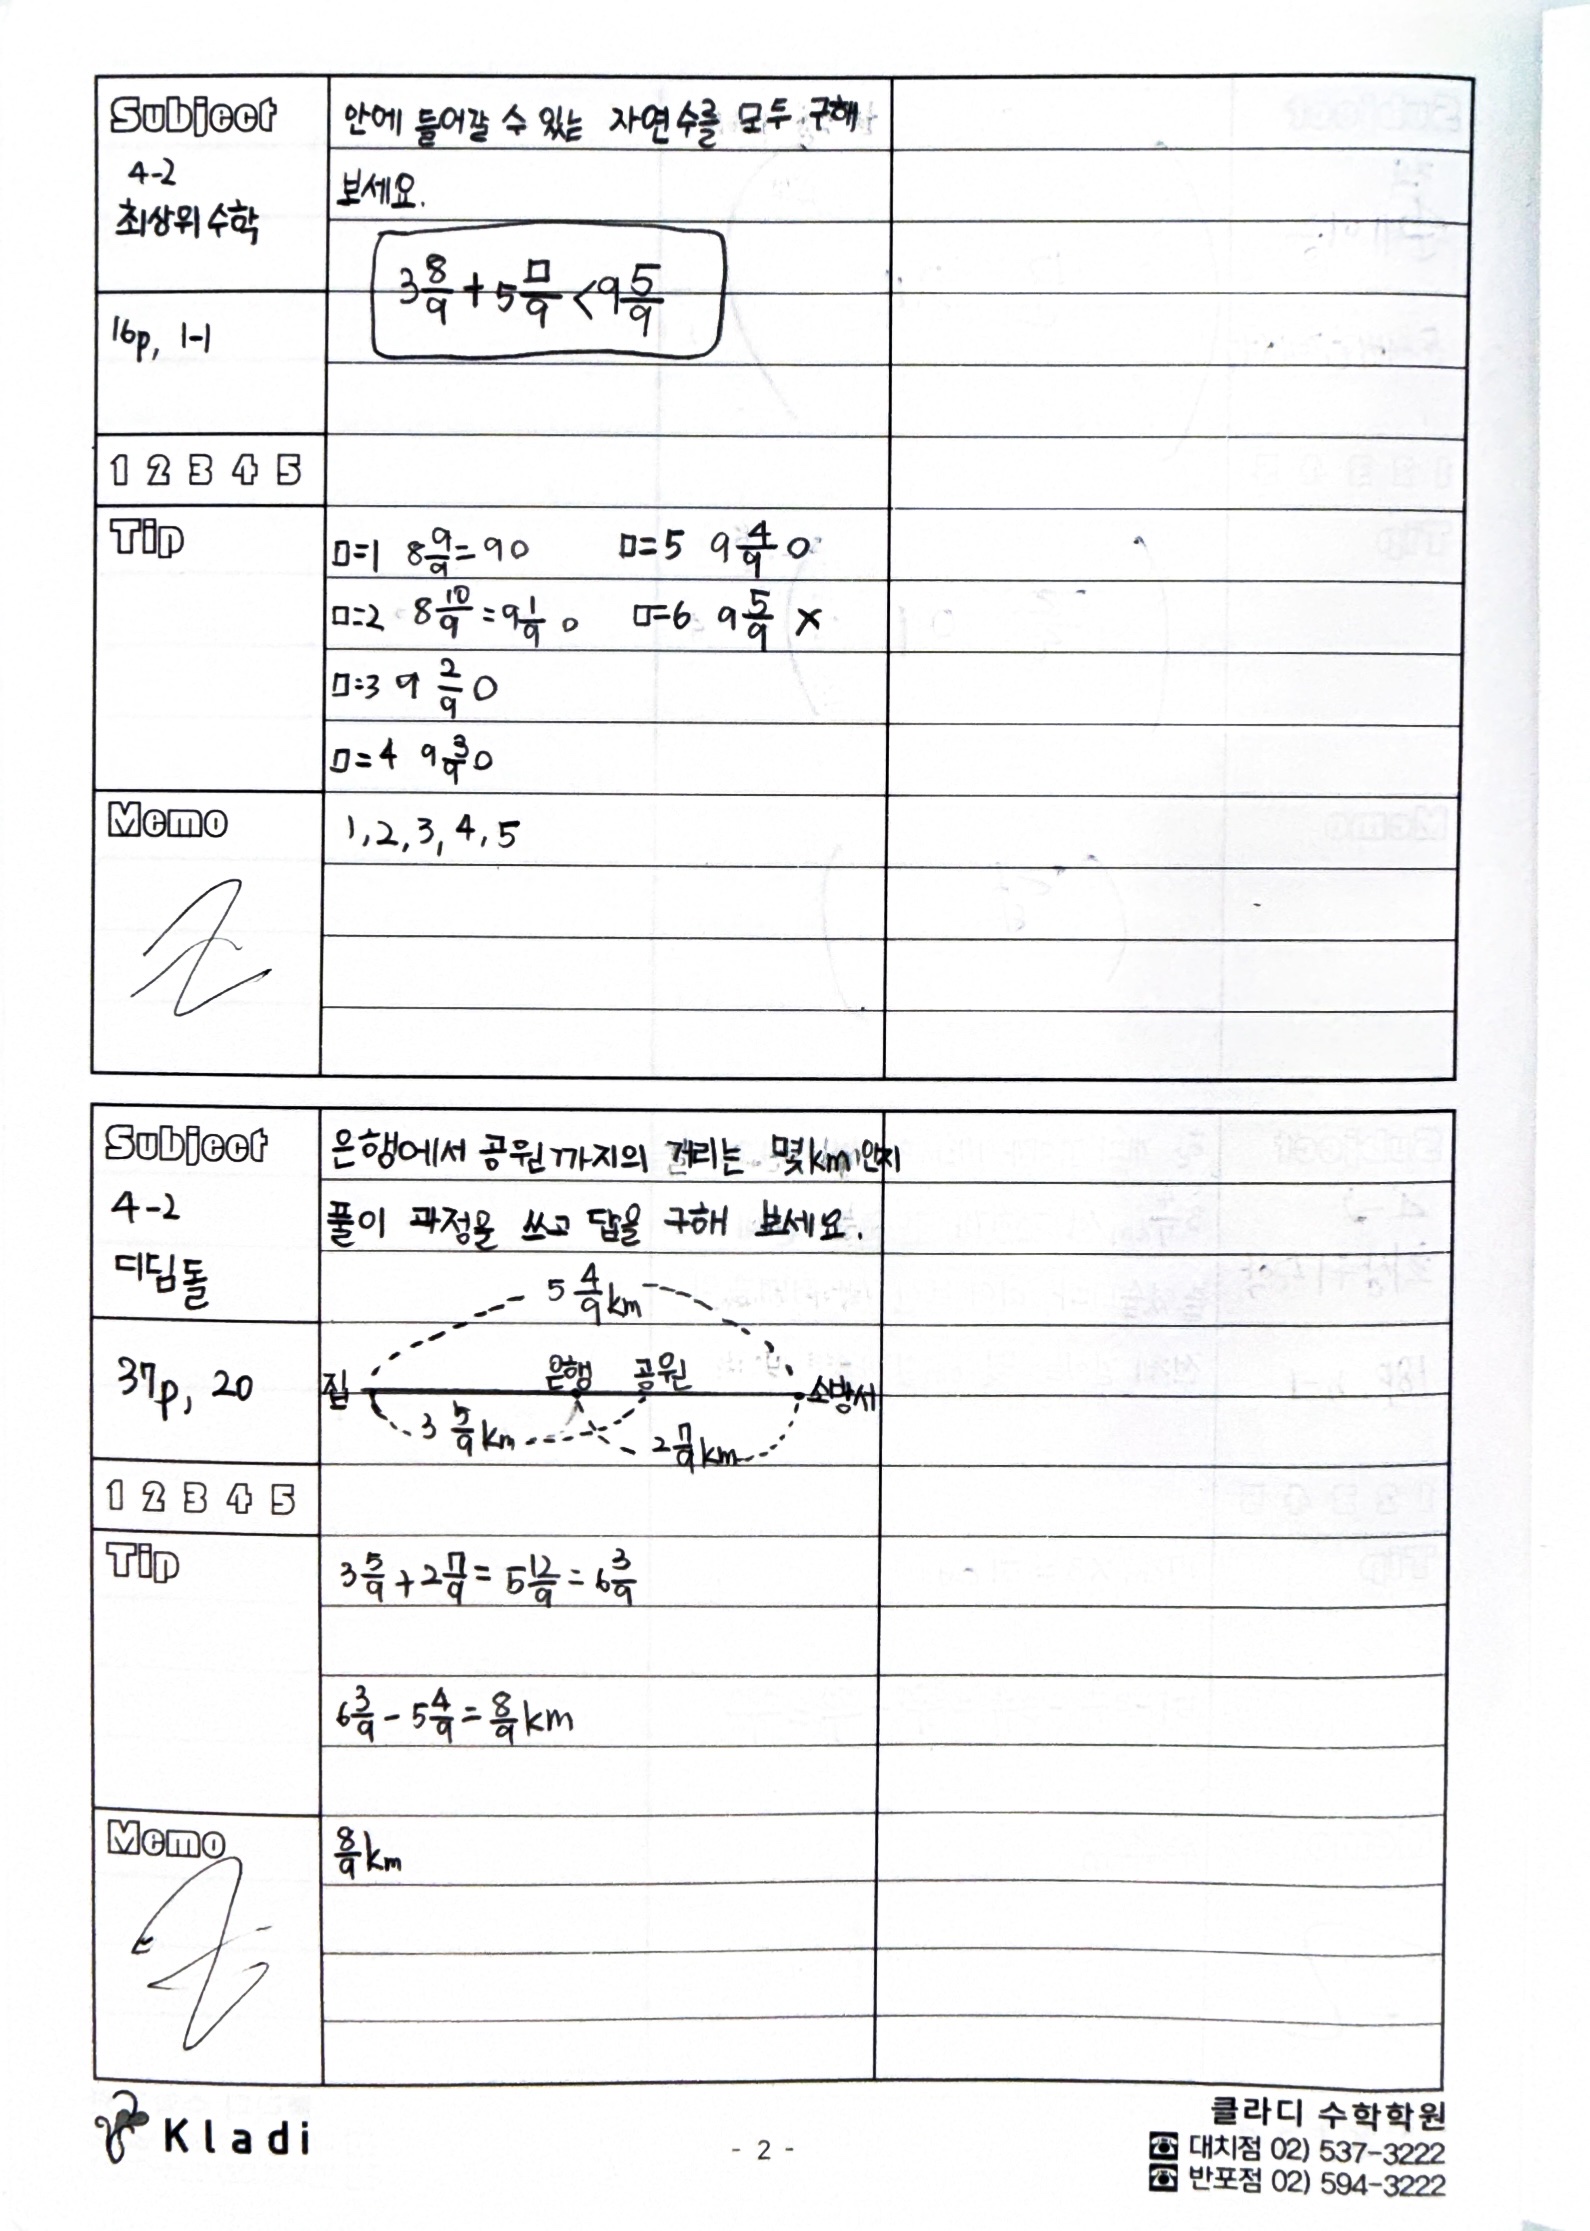 Subject
4-2
최상위수학
16p, 1-1
1 2 3 4 5
안에 들어갈 수 있는 자연수를 모두 구해
보세요.
3 8/9 + 5 □/9 < 9 5/9
Tip
□=1 8 9/9 = 9 0 □=5 9 4/9 0
□=2 8 10/9 = 9 1/9 0 □=6 9 5/9 X
□=3 9 2/9 0
□=4 9 3/9 0
Memo
1, 2, 3, 4, 5
Subject
4-2
디딤돌
37p, 20
1 2 3 4 5
은행에서 공원까지의 거리는 몇km인지
풀이 과정을 쓰고 답을 구해 보세요.
5 4/9 km
집 은행 공원 소방서
3 5/9 km 2 7/9 km
Tip
3 5/9 + 2 7/9 = 5 12/9 = 6 3/9
6 3/9 - 5 4/9 = 8/9 km
Memo
8/9 km
Kladi
- 2 -
클라디 수학학원
☎ 대치점 02) 537-3222
☎ 반포점 02) 594-3222